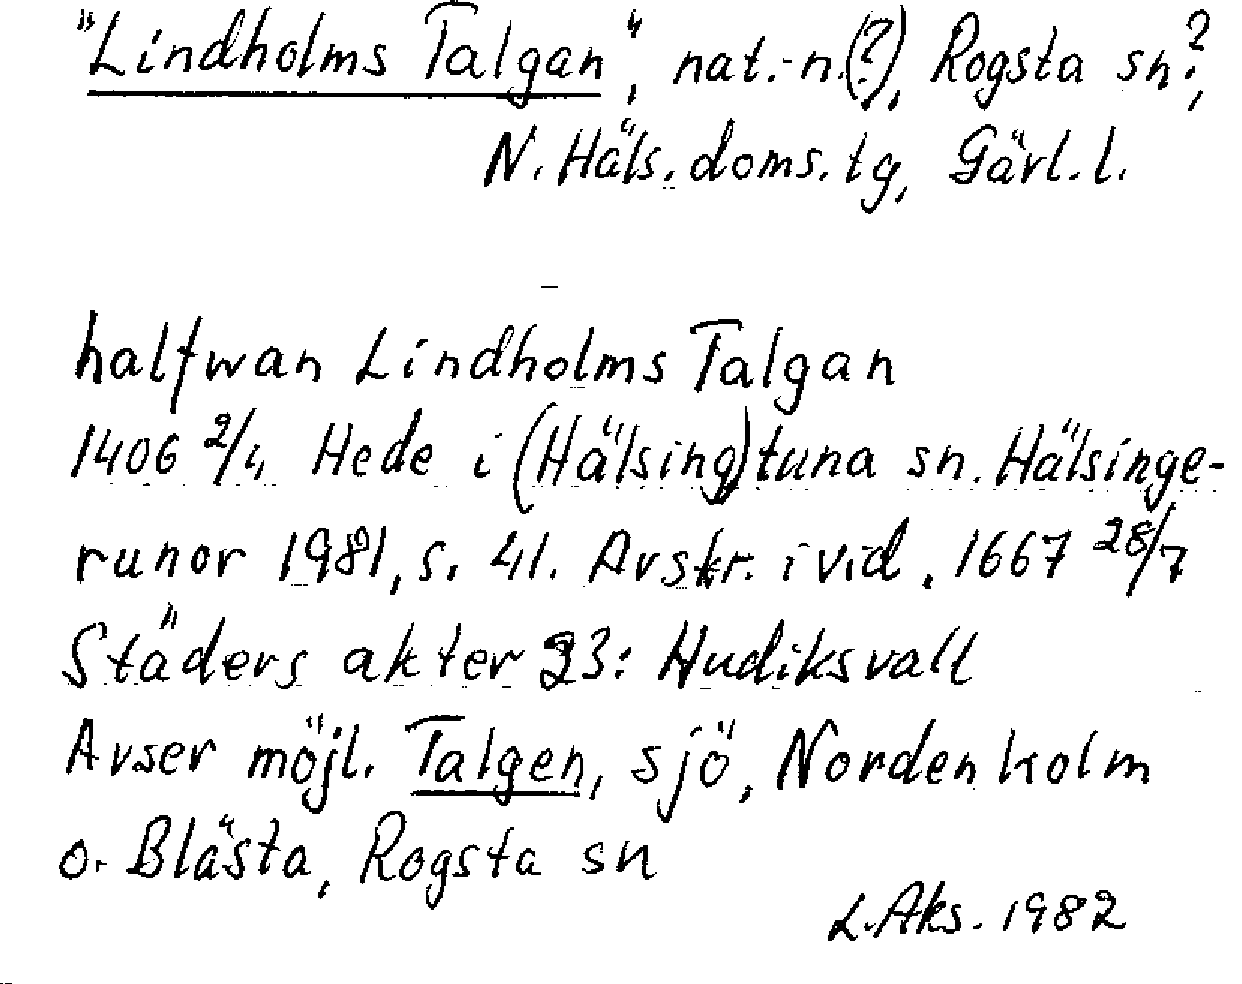 "Lindholms Talgan", nat.-n.(?), Rogsta sn?,
N. Häls. doms. tg, Gävl. l.
halfwan Lindholms Talgan
1406 2/4 Hede i (Hälsing)tuna sn. Hälsinge-
runor 1981, s. 41. Avskr. i vid. 1667 28/7
Städers akter 23: Hudiksvall
Avser möjl. Talgen, sjö, Nordenholm
o. Blästa, Rogsta sn
L. Aks. 1982